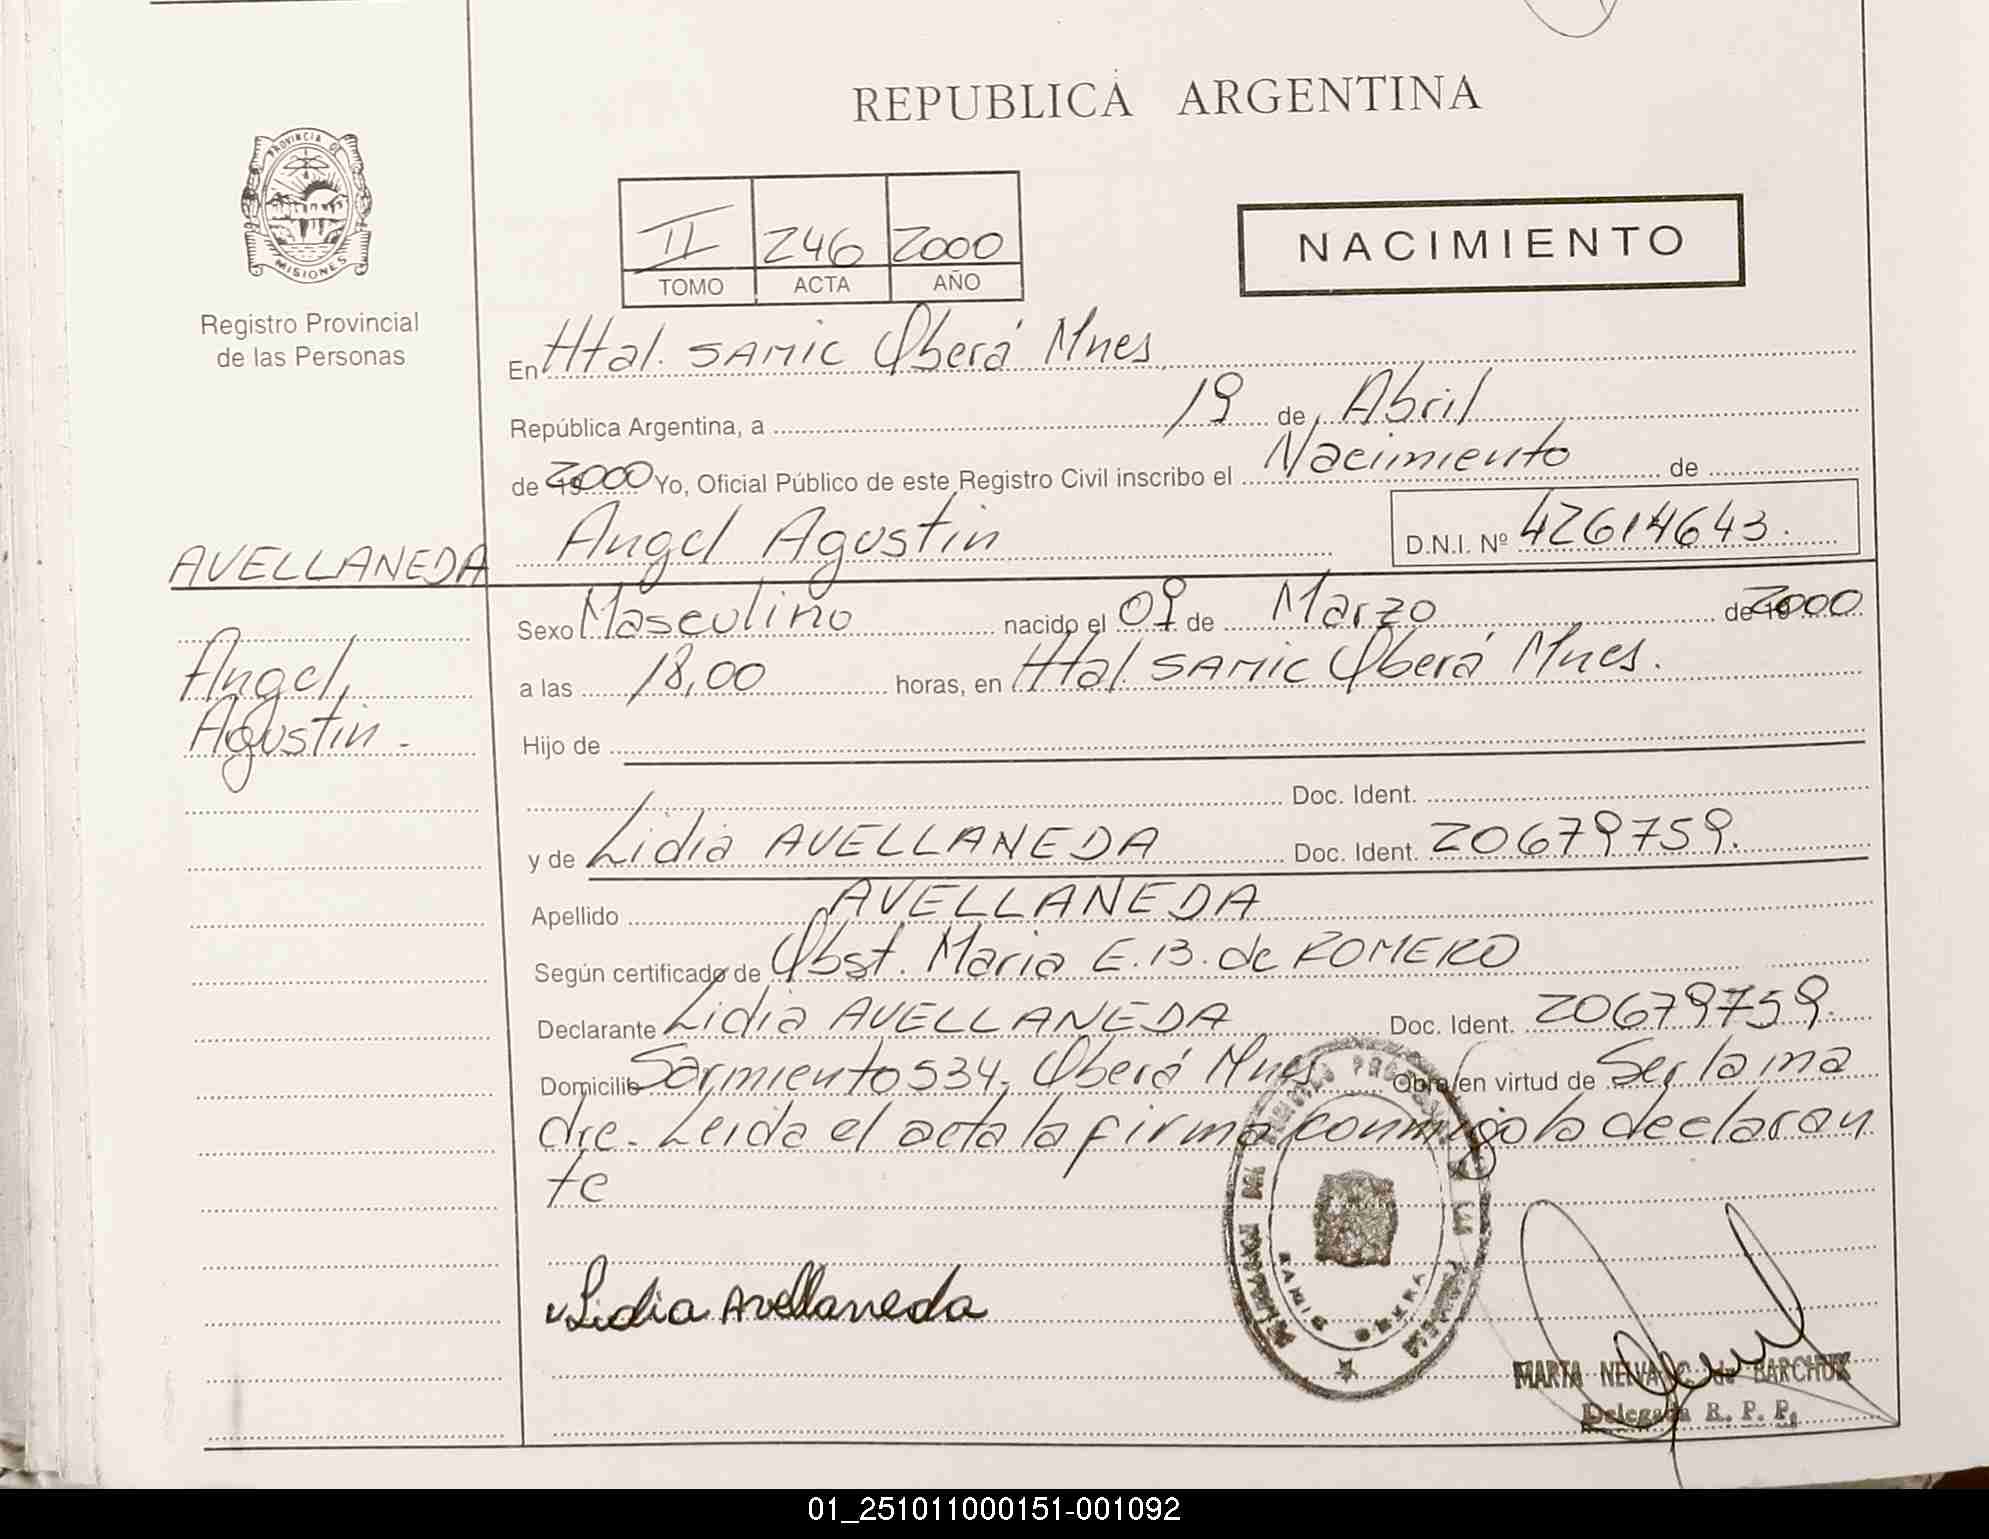 REPUBLICA ARGENTINA
PROVINCIA DE
MISIONES
Registro Provincial
de las Personas
II 246 2000
TOMO ACTA AÑO
NACIMIENTO
En Htal. SAMIC Oberá Mnes
República Argentina, a 19 de Abril
de 2000 Yo, Oficial Público de este Registro Civil inscribo el Nacimiento de
Angel Agustin D.N.I. Nº 42614643.
AVELLANEDA
Angel,
Agustin -
Sexo Masculino nacido el 09 de Marzo de 2000
a las 18,00 horas, en Htal. SAMIC Oberá Mnes.
Hijo de
Doc. Ident.
y de Lidia AVELLANEDA Doc. Ident. 20679759.
Apellido AVELLANEDA
Según certificado de Obst. Maria E. B. de ROMERO
Declarante Lidia AVELLANEDA Doc. Ident. 20679759.
Domicilio Sarmiento 534, Oberá Mnes Obra en virtud de Ser la ma
dre. Leida el acta la firma conmigo la declaran
te
Lidia Avellaneda
MARTA NELVA C. de BARCHUK
Delegada R. P. P.
01_251011000151-001092